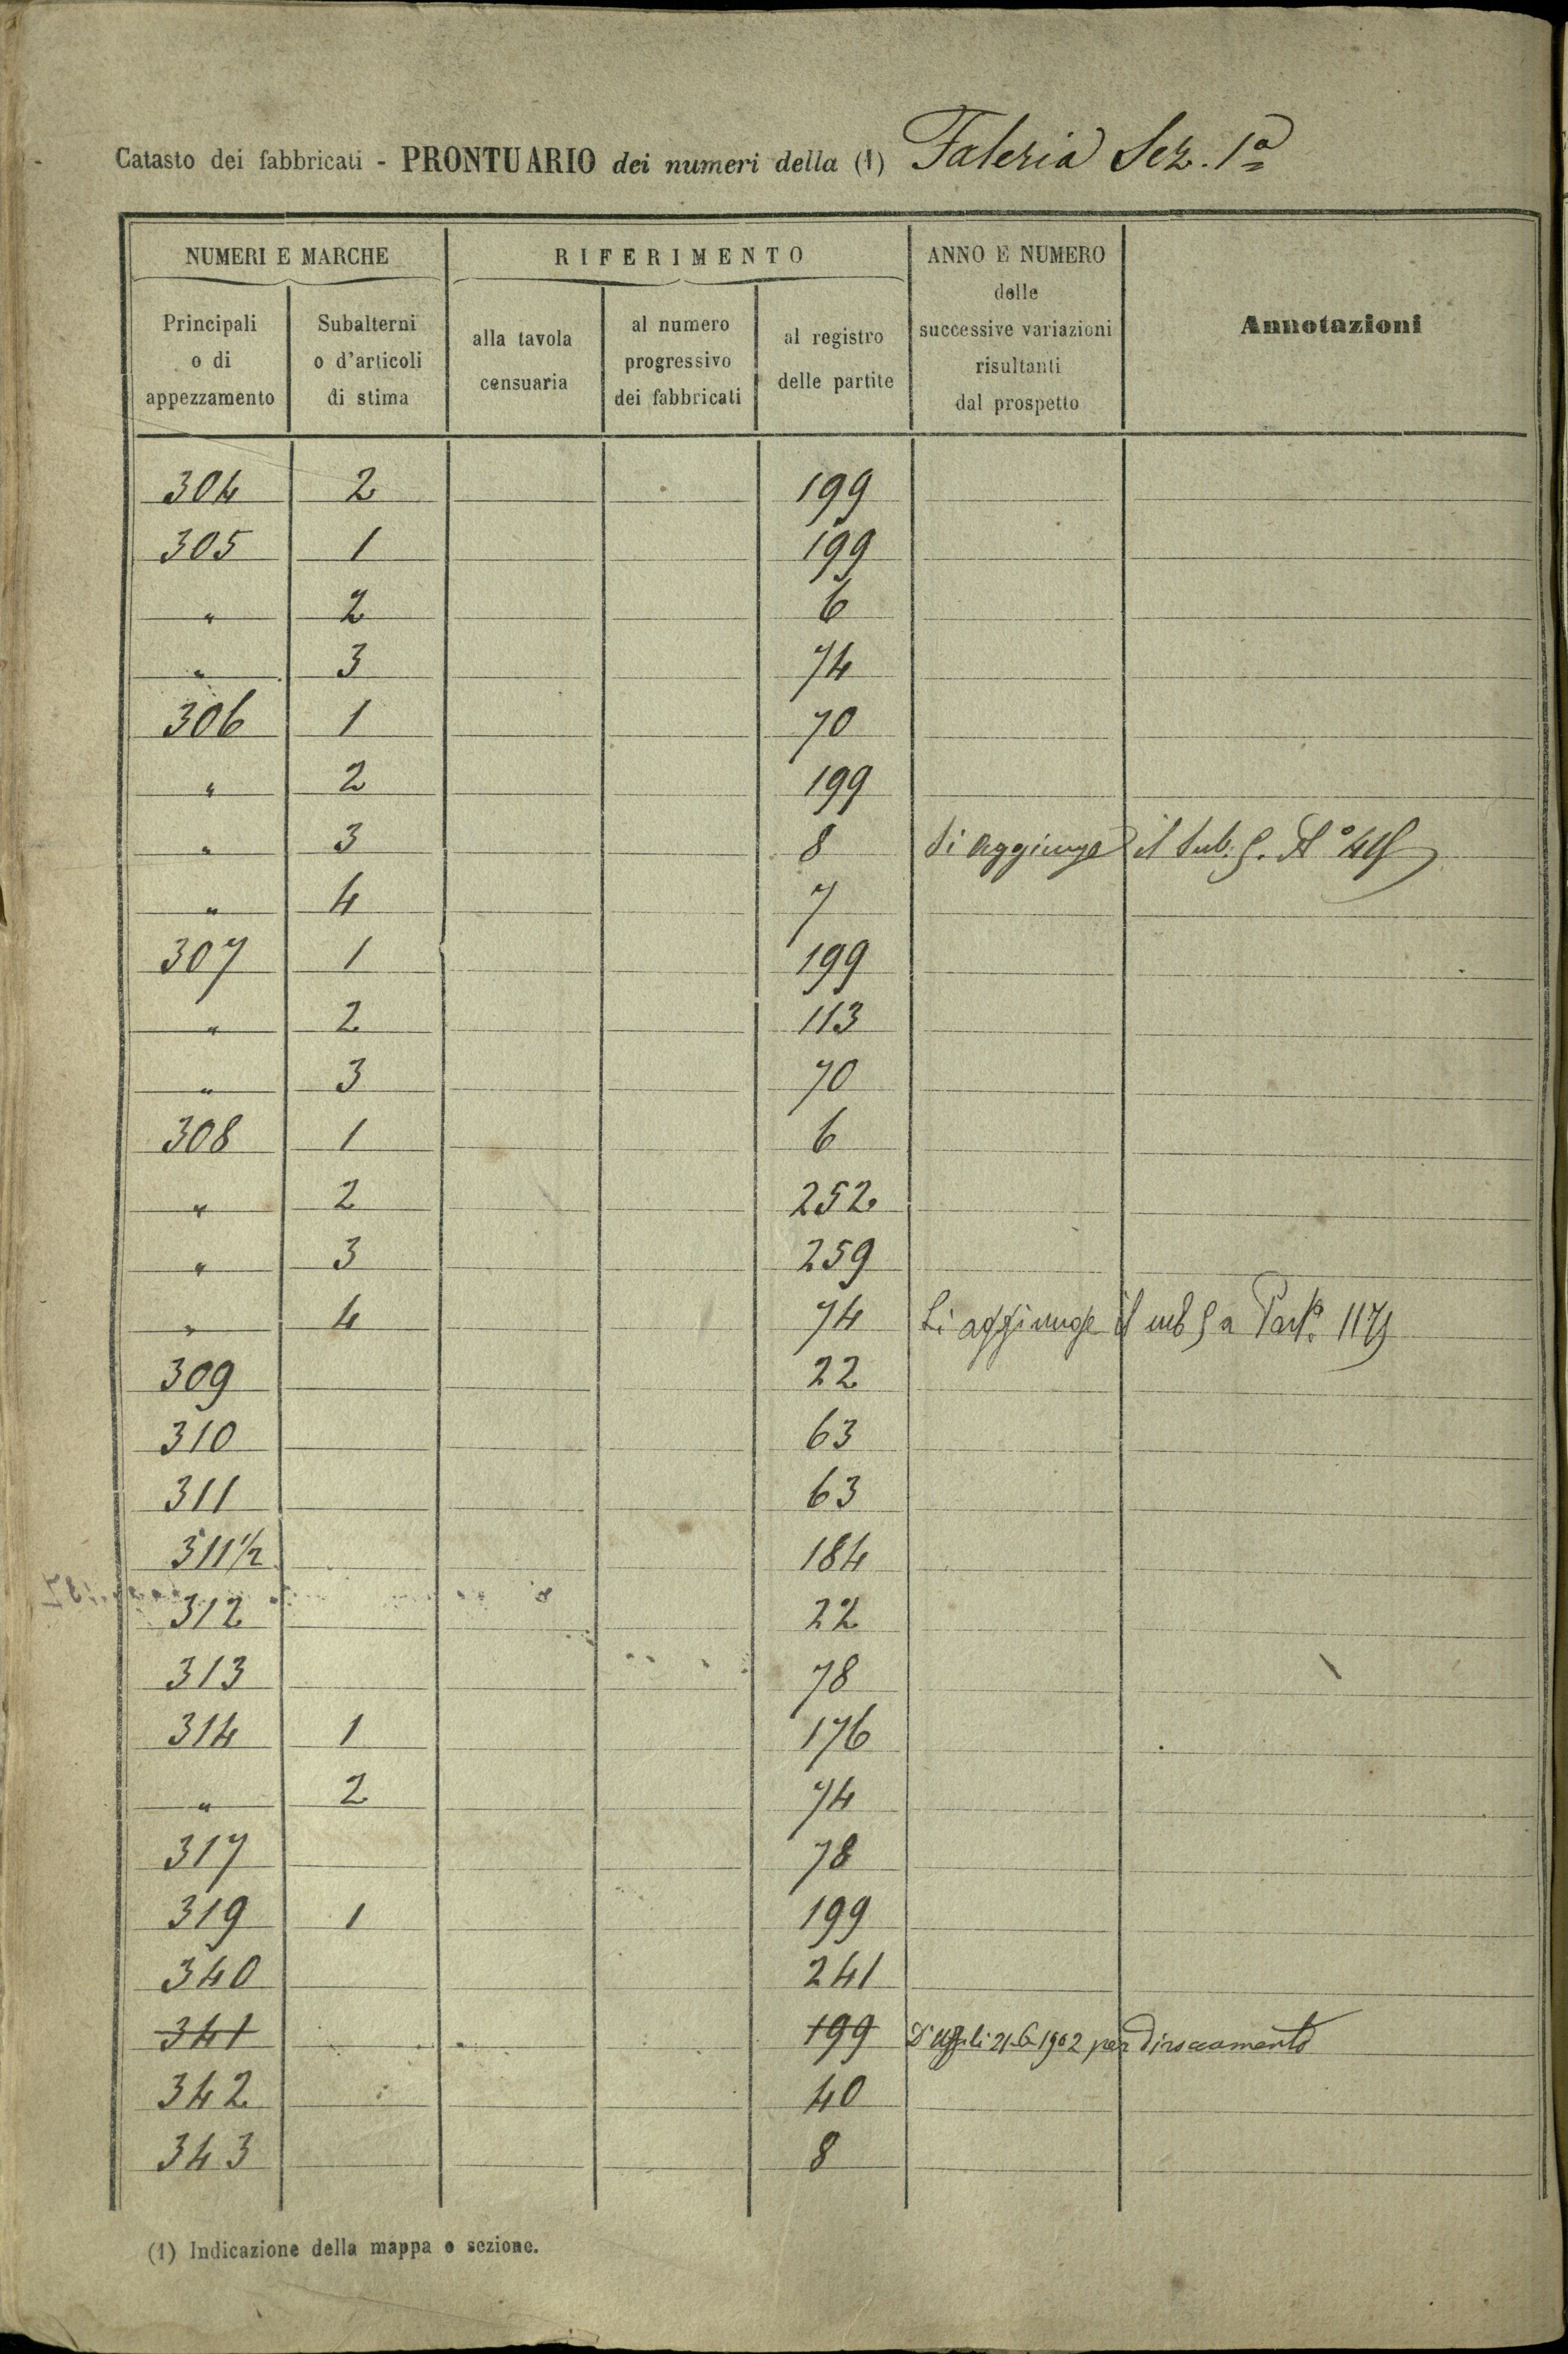 Catasto dei fabbricati - PRONTUARIO dei numeri della (1) Faleria Sez. 1ª
NUMERI E MARCHE
RIFERIMENTO
ANNO E NUMERO
delle
successive variazioni
risultanti
dal prospetto
Annotazioni
Principali
o di
appezzamento
Subalterni
o d'articoli
di stima
alla tavola
censuaria
al numero
progressivo
dei fabbricati
al registro
delle partite
304 2 199
305 1 199
" 2 6
" 3 74
306 1 70
" 2 199
" 3 8 Si aggiunge il Sub. 5.
" 4 7
307 1 199
" 2 113
" 3 70
308 1 6
" 2 252
" 3 259
" 4 74 Si aggiunge il sub 5 a Part.
309 22
310 63
311 63
311 1/2 184
312 22
313 78
314 1 176
" 2 74
317 78
319 1 199
340 241
341 199 21-6-1902 per diroccamento
342 40
343 8
(1) Indicazione della mappa o sezione.